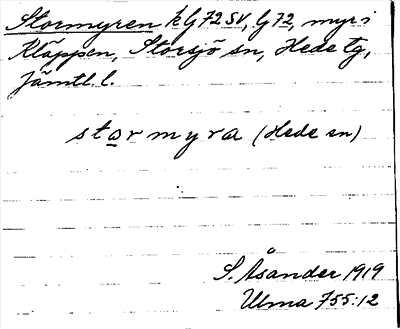 Stormyren k G72SV, G72, myr i
Kläppen, Storsjö sn, Hede tg,
Jämtl. l.
stormyra (Hede sn)
S. Åsander 1919
Ulma 755:12